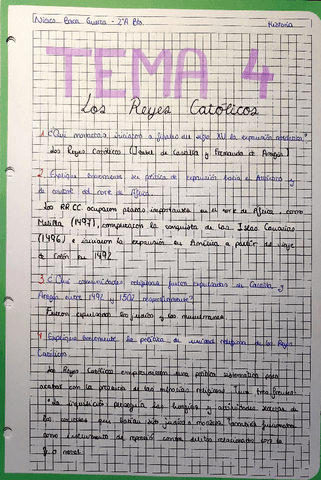 Baca Guerra - 2ºA Bto. Historia
TEMA 4
Los Reyes Católicos
1 ¿Qué monarcas iniciaron a finales del siglo XV la expansión atlántica?
Los Reyes Católicos (Isabel de Castilla y Fernando de Aragón)
2. Explique brevemente su política de expansión hacia el Atlántico y
de control del norte de África.
Los RR.CC. ocuparon plazas importantes en el norte de África, como
Melilla (1497), completaron la conquista de las Islas Canarias
(1496) e iniciaron la expansión en América a partir del viaje
de Colón en 1492.
3 ¿Qué comunidades religiosas fueron expulsadas de Castilla y
Aragón entre 1492 y 1502 respectivamente?
Fueron expulsados los judíos y los musulmanes.
4 Explique brevemente la política de unidad religiosa de los Reyes
Católicos.
Los Reyes Católicos emprendieron una política sistemática para
acabar con la presencia de las minorías religiosas.
La inquisición: perseguía las herejías y actividades secretas de
los conversos que habían sido judíos o moriscos. También funcionaba
como instrumento de represión contra delitos relacionados con la
fe o moral.